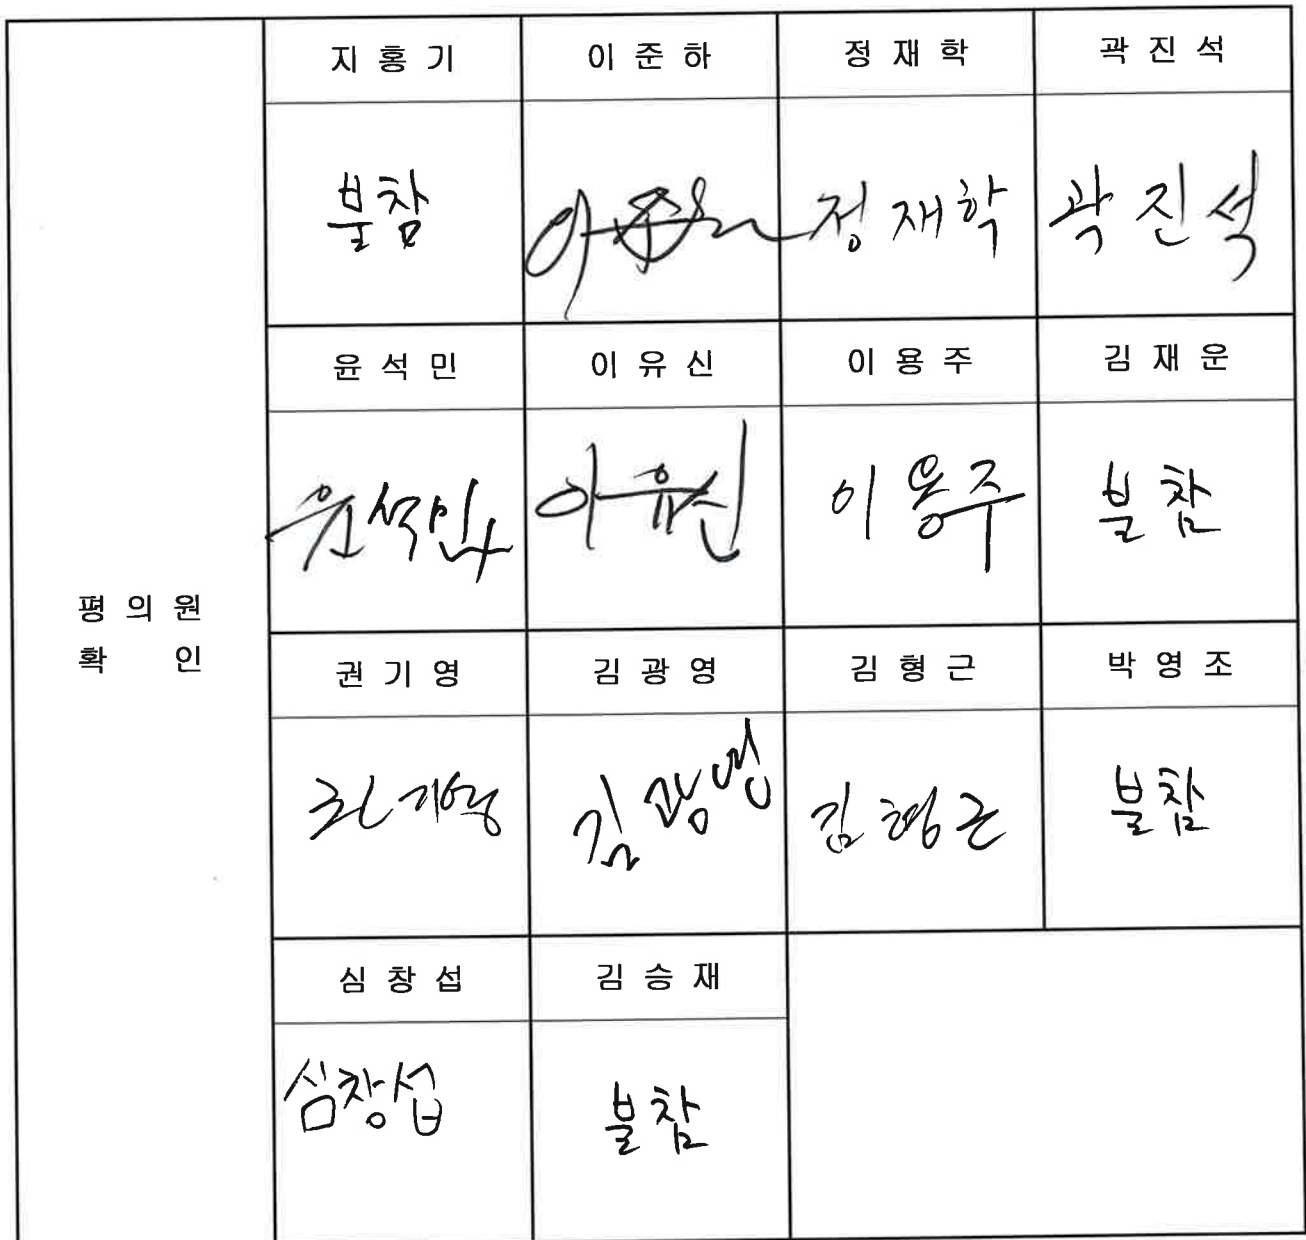 지 홍 기 이 준 하 정 재 학 곽 진 석
불참 이준하 정재학 곽진석
윤 석 민 이 유 신 이 용 주 김 재 운
윤석민 이유신 이용주 불참
평 의 원
확 인
권 기 영 김 광 영 김 형 근 박 영 조
권기영 김광영 김형근 불참
심 창 섭 김 승 재
심창섭 불참